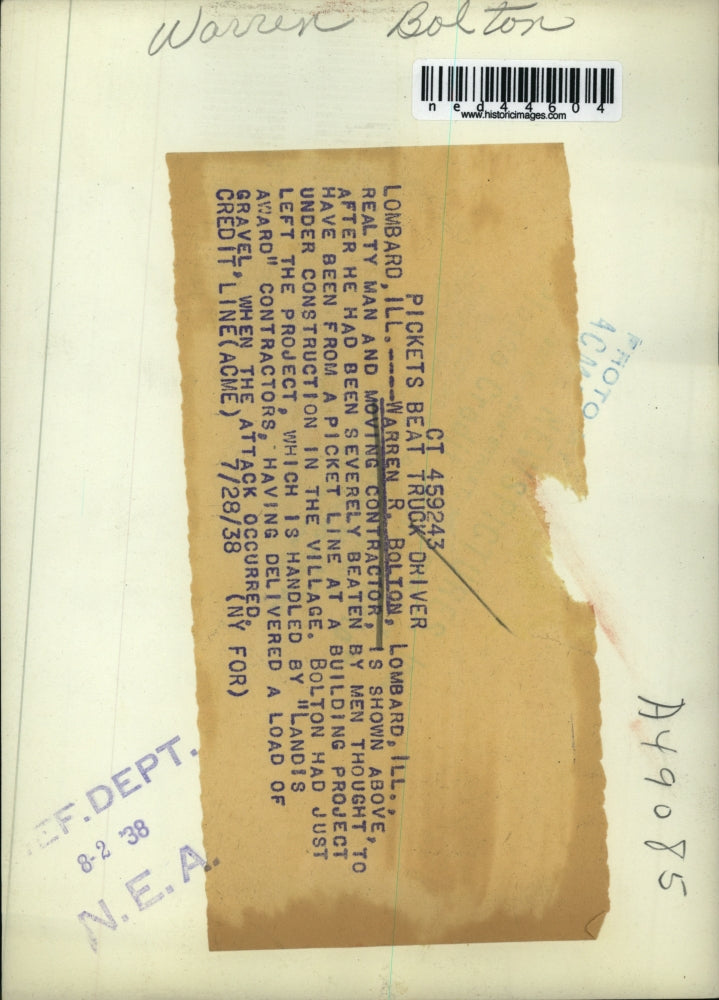 Warren Bolton
ned44604
www.historicimages.com
PHOTO
ACME
CT 459243
PICKETS BEAT TRUCK DRIVER
LOMBARD, ILL.----WARREN R. BOLTON, LOMBARD, ILL.,
REALTY MAN AND MOVING CONTRACTOR, IS SHOWN ABOVE,
AFTER HE HAD BEEN SEVERELY BEATEN BY MEN THOUGHT TO
HAVE BEEN FROM A PICKET LINE AT A BUILDING PROJECT
UNDER CONSTRUCTION IN THE VILLAGE. BOLTON HAD JUST
LEFT THE PROJECT, WHICH IS HANDLED BY "LANDIS
AWARD" CONTRACTORS, HAVING DELIVERED A LOAD OF
GRAVEL, WHEN THE ATTACK OCCURRED.
CREDIT LINE (ACME) 7/28/38 (NY FOR)
A49085
EF. DEPT.
8-2 '38
N.E.A.